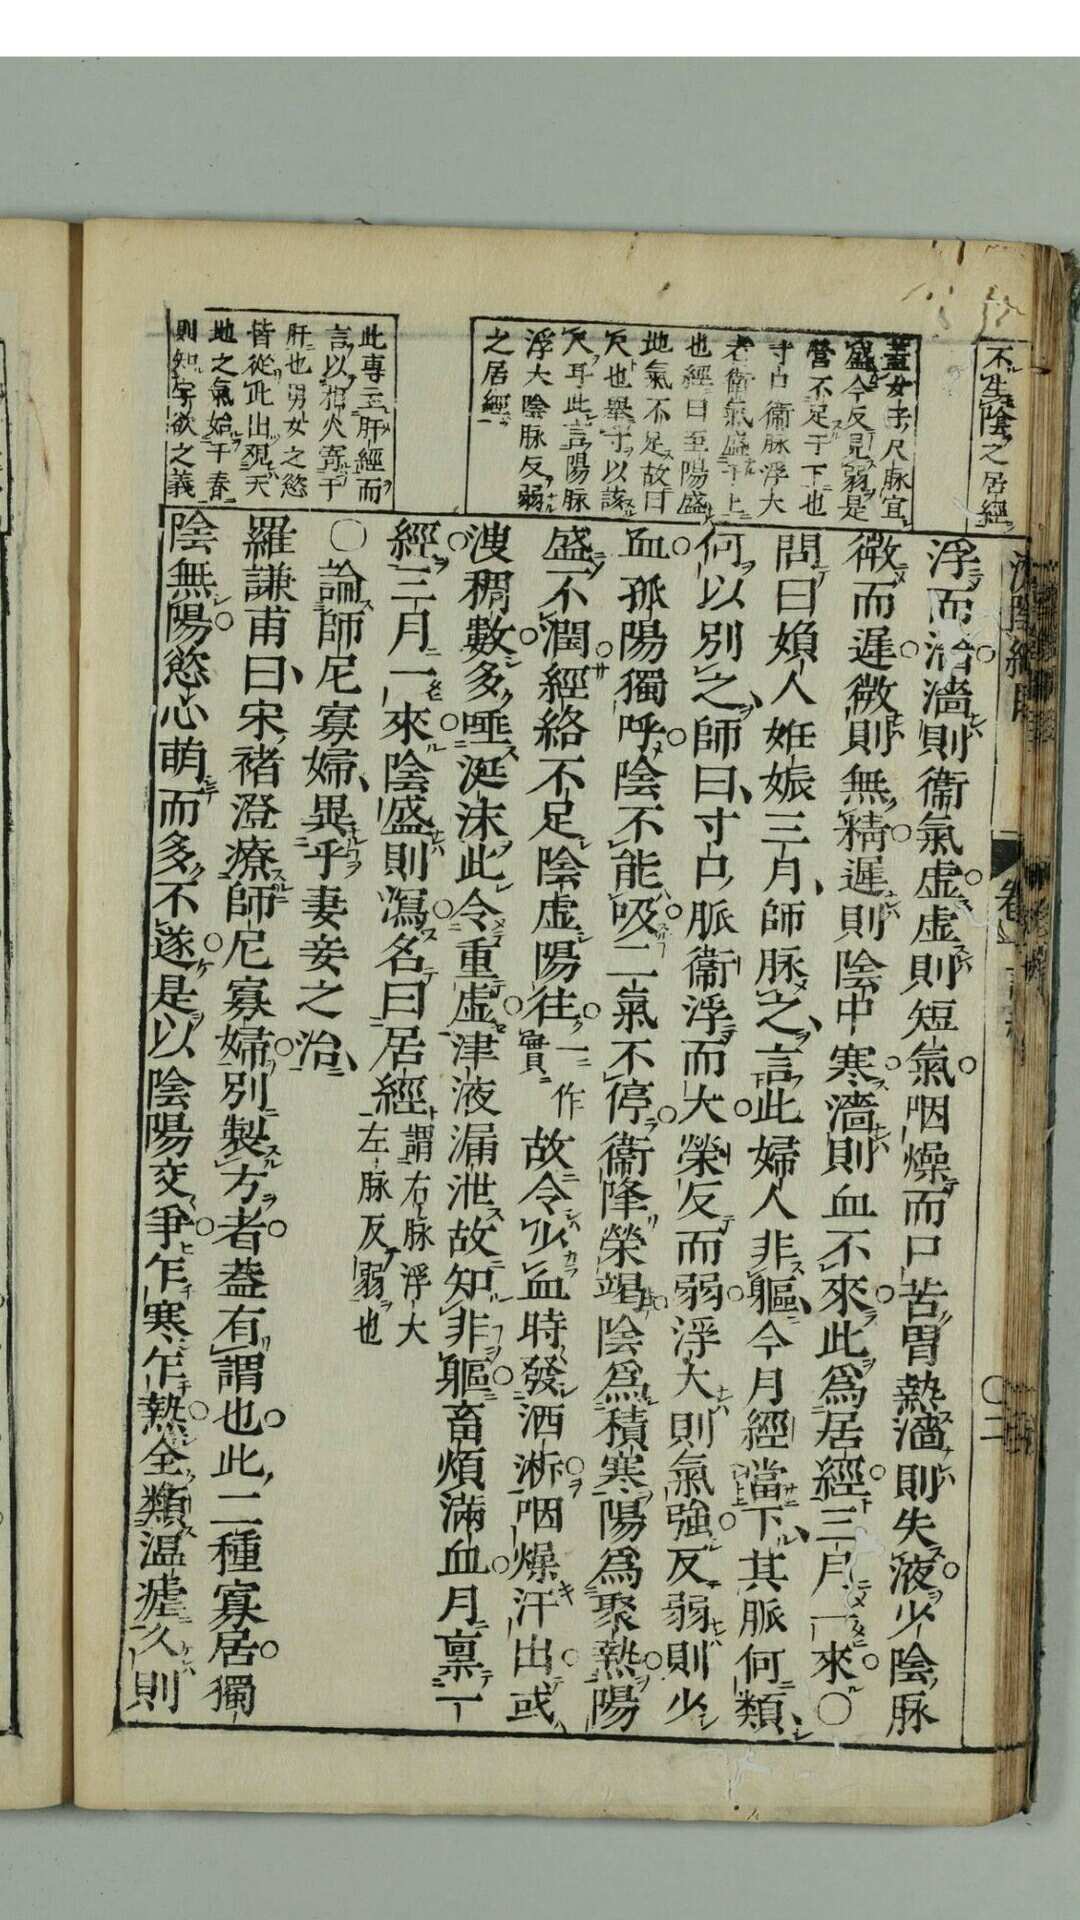 不生陰之居經
蓋女子尺脉宜
盛今反見弱是
營不足于下也
寸口衛脉浮大
者衛氣盛于上
也經曰至陽盛
地氣不足故曰
尺也舉寸以該
尺耳此言陽脉
浮大陰脉反弱
之居經
此專主肝經而
言以相火寄于
肝也男女之慾
皆從此出現天
地之氣始于春
則知字欲之義
浮而濇濇則衞氣虚虚則短氣咽燥而口苦胃熱濇則失液少陰脉
微而遲微則無精遲則陰中寒濇則血不來此爲居經三月一來〇
問曰婦人姙娠三月師脉之言此婦人非軀今月經當下其脈何類
何以別之師曰寸口脈衞浮而大榮反而弱浮大則氣強反弱則少
血孤陽獨呼陰不能吸二氣不停衞降榮竭陰爲積寒陽爲聚熱陽
盛不潤經絡不足陰虚陽往一作實故令少血時發洒淅咽燥汗出或
溲稠數多唾涎沫此令重虚津液漏泄故知非軀畜煩滿血月禀一
經三月一來陰盛則瀉名曰居經謂右脉浮大左脉反弱也
〇論師尼寡婦異乎妻妾之治
羅謙甫曰宋褚澄療師尼寡婦別製方者葢有謂也此二種寡居獨
陰無陽慾心萌而多不遂是以陰陽交爭乍寒乍熱全類温瘧久則
卷
〇二